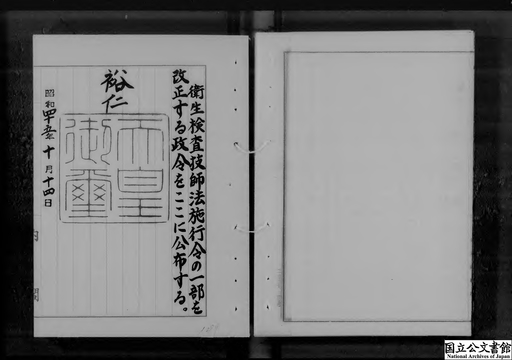 衛生検査技師法施行令の一部を
改正する政令をここに公布する。
裕仁
天皇
御璽
昭和四十五年十月十四日
内閣
国立公文書館
National Archives of Japan